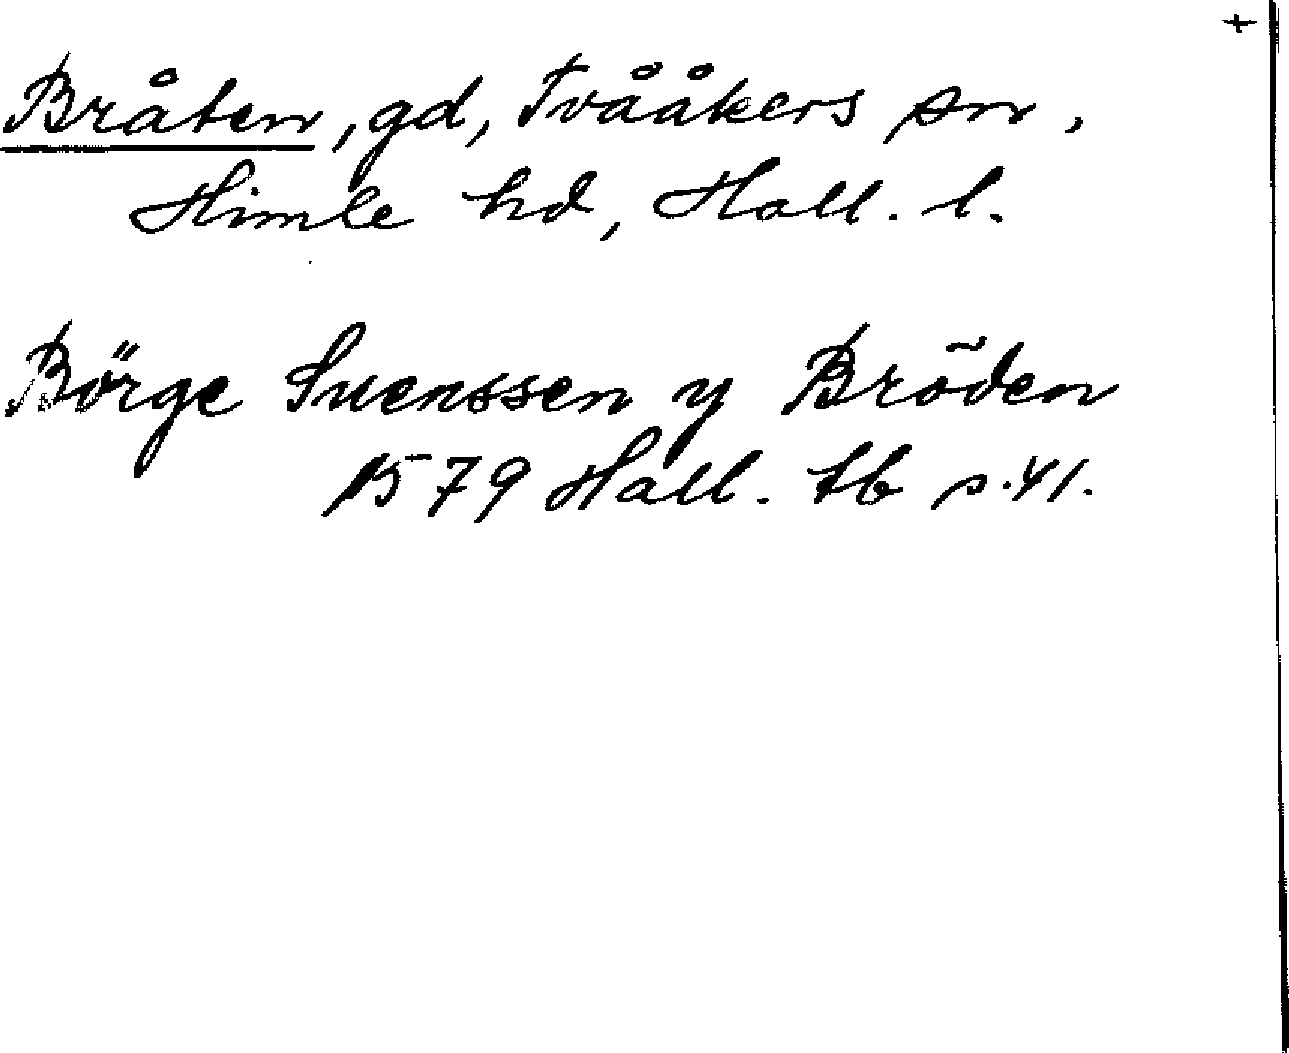 +
Bråten, gd, Tvååkers sn,
Himle hd, Hall. l.
Börge Suenssen y Brõden
1579 Hall. tb s. 41.